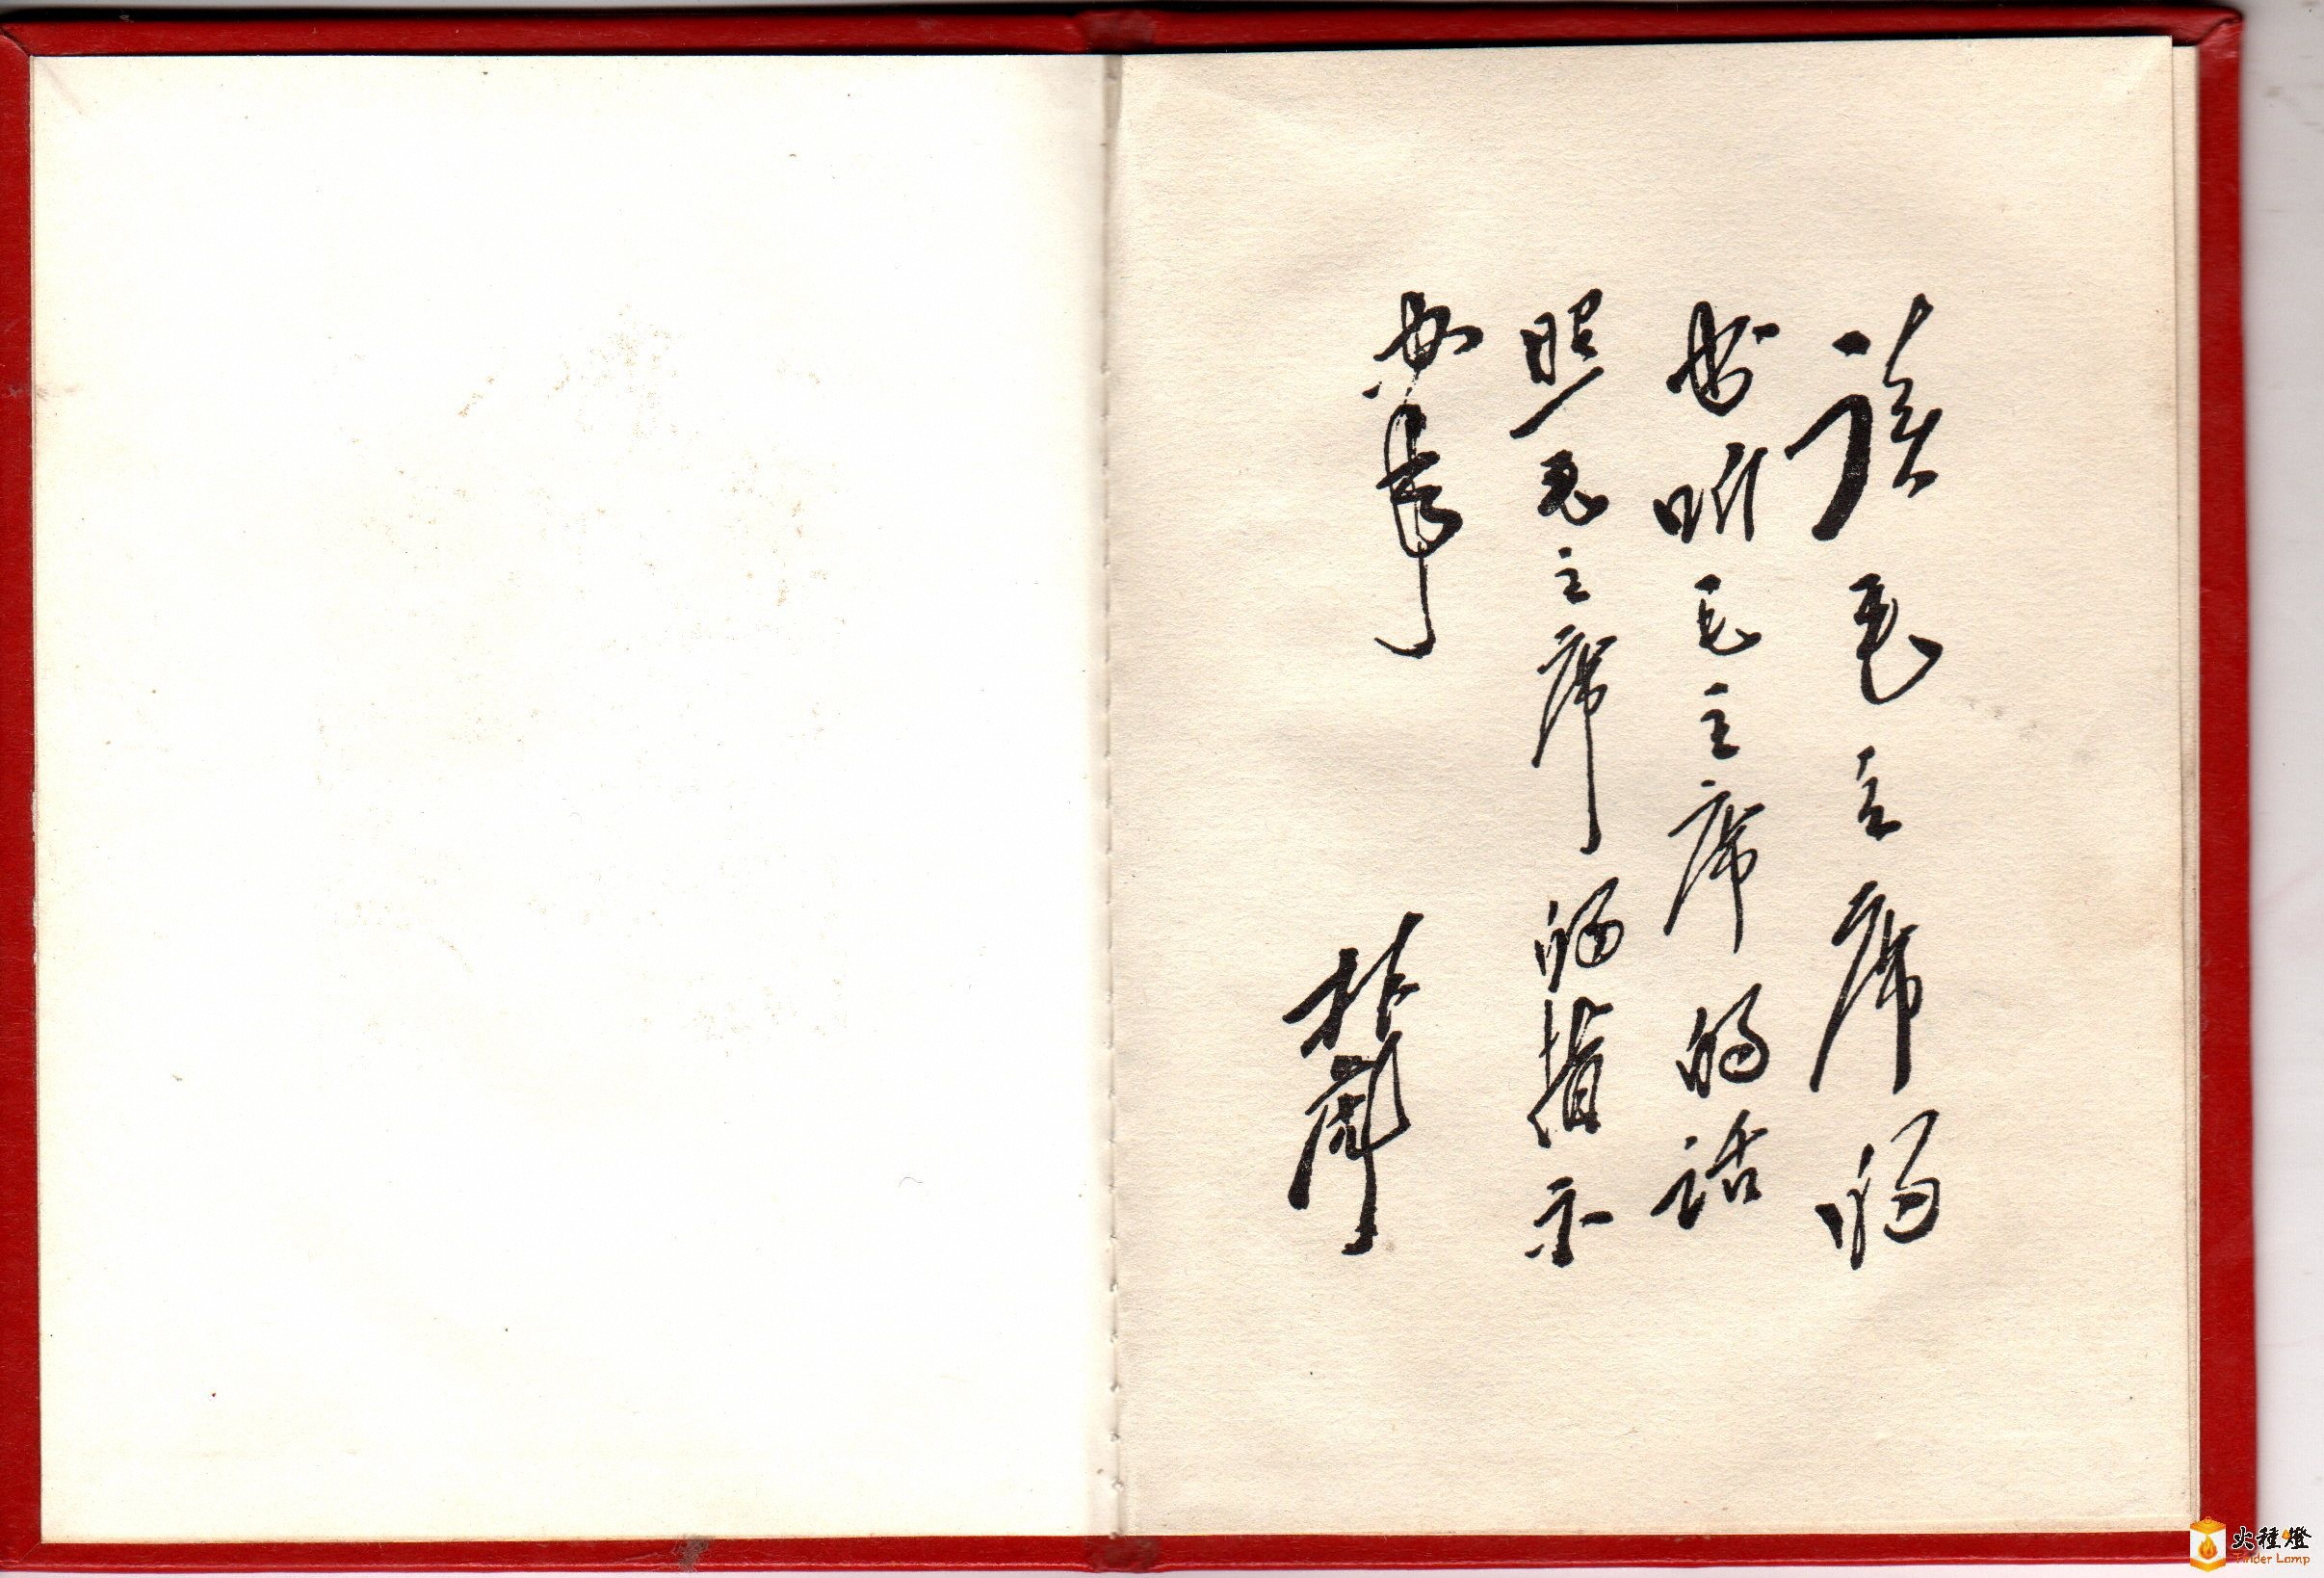 读毛主席的
书听毛主席的话
照毛主席的指示
办事
林彪
火種燈
Tinder Lamp